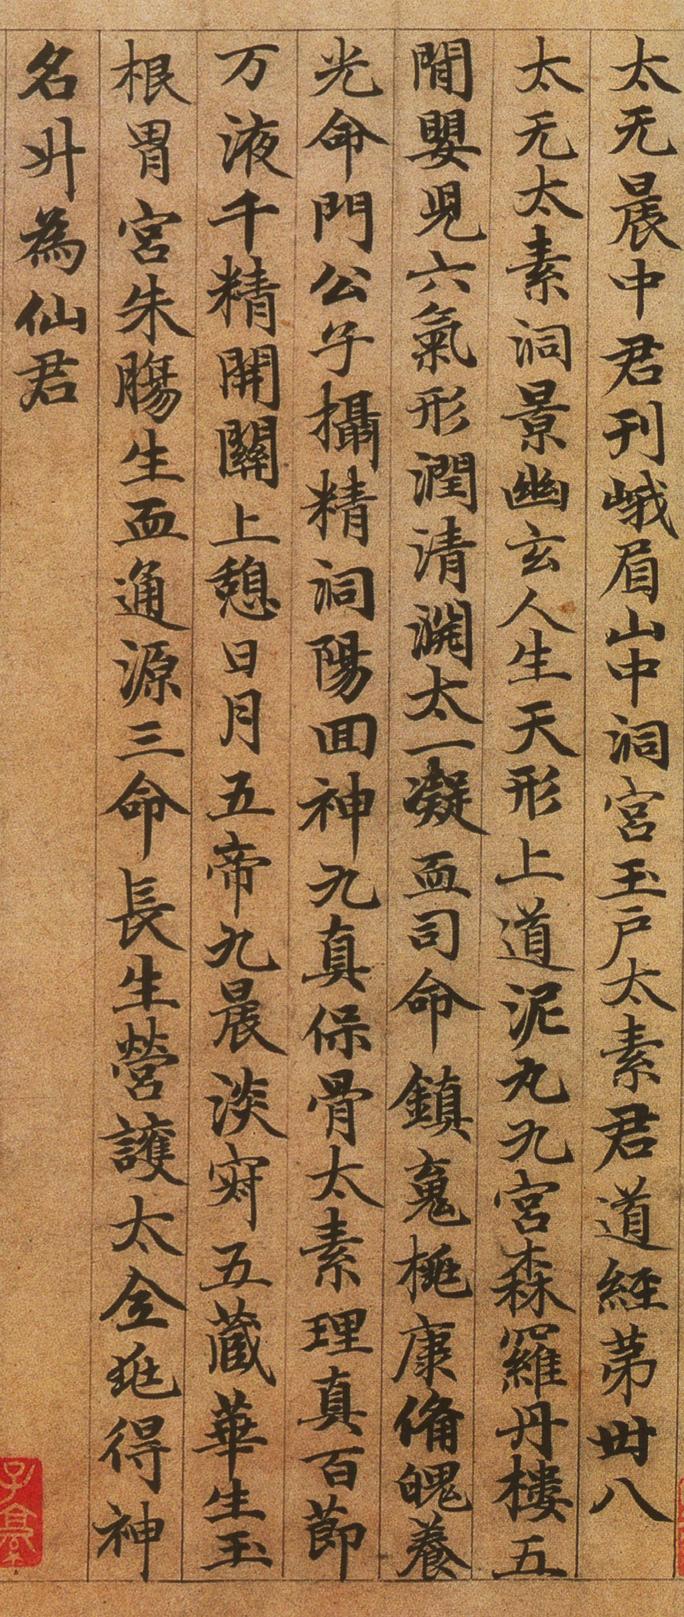 太无晨中君刊峨眉山中洞宫玉戶太素君道經第卌八
太无太素洞景幽玄人生天形上道泥丸九宮森羅丹樓五
閒嬰児六氣形潤清淵太一凝血司命鎮䰟桃康俻魄養
光命門公子攝精洞陽囬神九真保骨太素理真百節
万液千精開關上憩日月五帝九晨淡寂五藏華生玉
根胃宮朱腸生血通源三命長生營護太仝延得神
名升為仙君